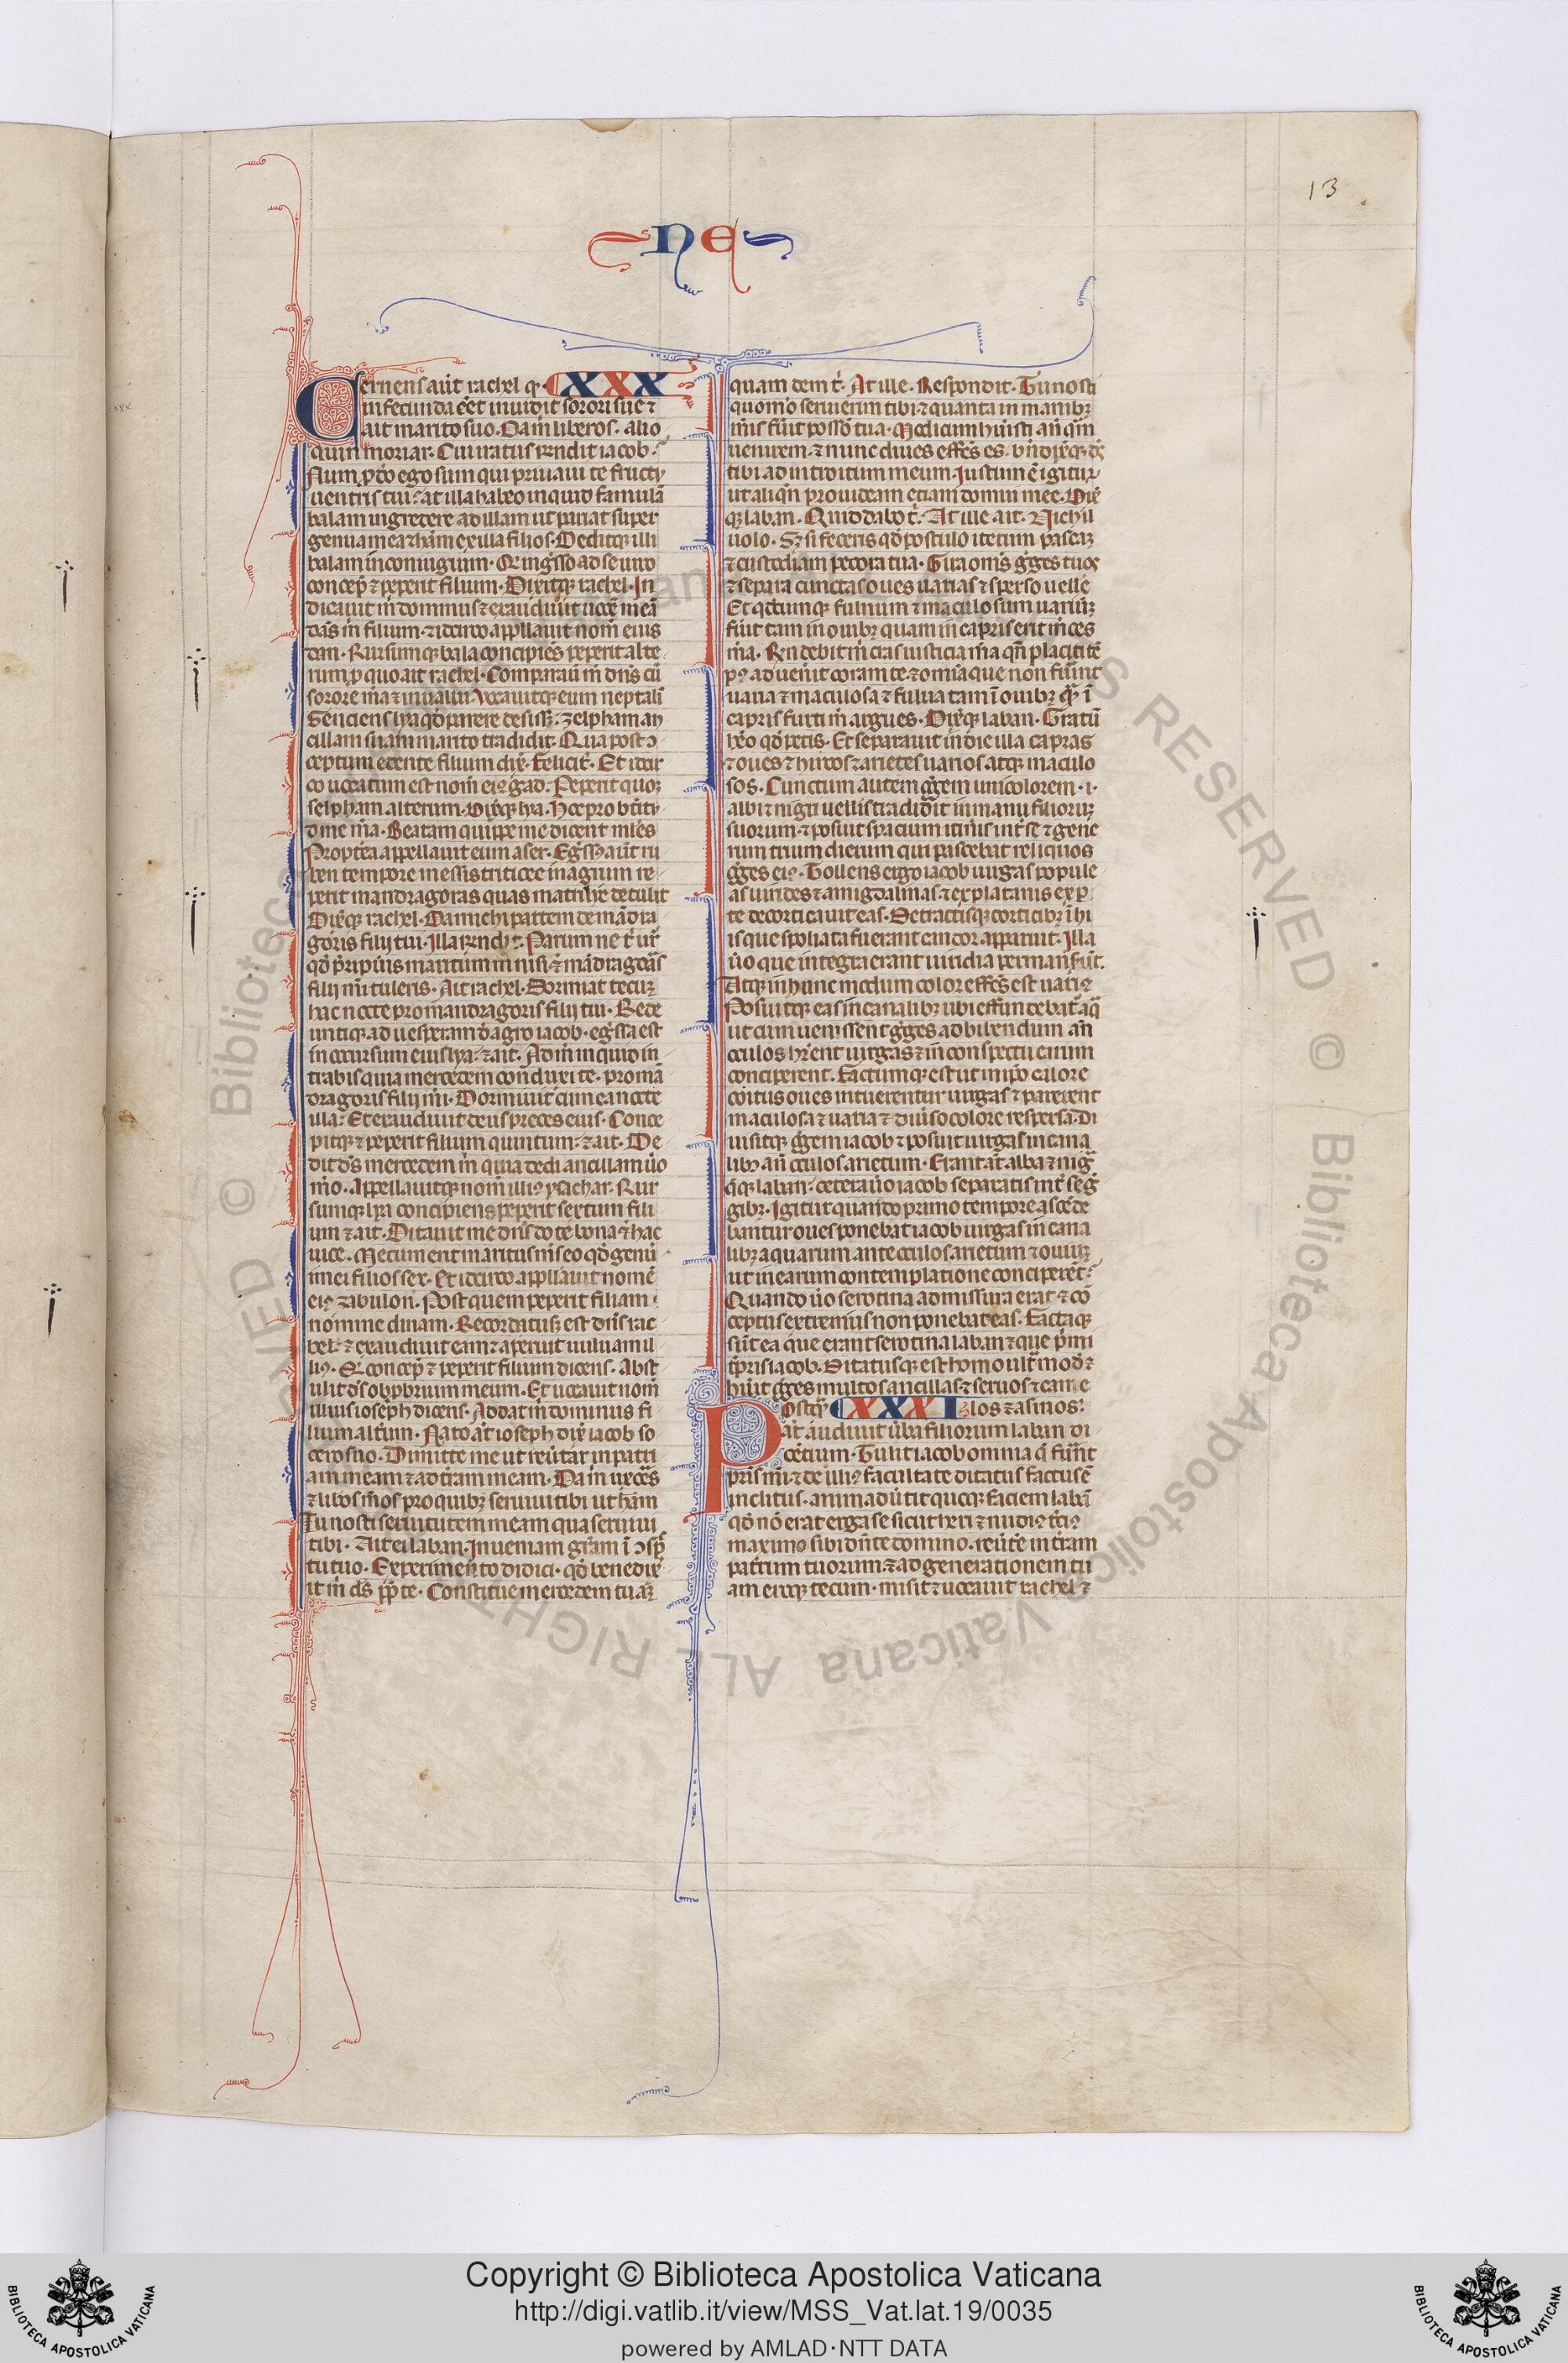 13
NE
Cernens aūt rachel qꝫ XXX
infecunda eēt inuidit sorori sue ⁊
ait marito suo. Da m̄ liberos. alio
quin moriar. Cui iratus r̄ndit iacob.
Num ꝓ dō ego sum qui priuaui te fructu
uentris tui. at illa habeo inquid famulā
balam ingredere ad illam ut pariat super
genua mea ⁊ hām ex illa filios. Deditqꝫ illi
balam in coniugium. Q̄ ing̊sso ad se uiro
concep̄ ⁊ peperit filium. Dixitqꝫ rachel. In
dicauit m̄ dominus ⁊ exaudiuit uocē meā
dans m̄ filium. ⁊ idcirco appllauit nom̄ eius
dan. Rursumqꝫ bala concipiēs peperit alte
rum ꝓ quo ait rachel. Comparau̅ m̄ dn̄s cū
sorore m̄a ⁊ inualui. Vocauitqꝫ eum neptali
Senciens lya qd̄ parere desisꝫ. zelpham an
cillam suam marito tradidit. Qua post ↄ
ceptum edente filium dix̄. Felicit̄. Et idcir
co uocatum est nom̄ eiꝰ gad. Peperit quoqꝫ
selpham alterum. Dixitqꝫ lya. Hoc pro btīt
dine m̄a. Beatam quippe me dicent mlēs
Propterea appellauit eum aser. Egr̄ssꝰ aūt ru
ben tempore messis triticee in agrum re
perit mandragoras quas matri lye detulit
Dixitqꝫ rachel. Da michi partem de mādra
goris filij tui. Illa r̄ndit. Parum ne t̄ ur̄
qd̄ p̄ripu̅is maritum m̄ nisi ⁊ mādragoās
filij m̄i tuleris. Ait rachel. Dormiat tecuꝫ
hac nocte pro mandragoris filij tui. Rede
untiqꝫ ad uesperam d̄ agro iacob. egr̄ssa est
in occursum eius lya. ⁊ ait. Ad m̄ inquid in
trabis quia mercedem conduxi te. pro mā
dragoris filij m̄i. Dormiuit cum ea nocte
illa. Et exaudiuit deus preces eius. Conce
pitqꝫ ⁊ peperit filium quintum. ⁊ ait. De
dit ds̄ mercedem m̄ quia dedi ancillam uiro
m̄o. Appellauitqꝫ nom̄ illiꝰ ysachar. Rur
sumqꝫ lya concipiens peperit sextum fili
um ⁊ ait. Ditauit me dn̄s dote bona ⁊ hac
uice. Mecum erit maritus m̄s eo qd̄ genu̅
im ei filios sex. Et idcirco appllauit nomē
eiꝰ zabulon. Post quem peperit filiam
nomine dinam. Recordatus est dn̄s rac
hel. ⁊ exaudiuit eam ⁊ aperuit uuluam il
liꝰ. Q̄ concep̄ ⁊ peperit filium dicens. Abst
ulit ds̄ obprbrium meum. Et uocauit nom̄
illius ioseph dicens. Addat m̄ dominus fi
lium altum. Nato āt ioseph dix̄ iacob so
cero suo. Dimitte me ut reu̅tar in patri
am meam ⁊ ad t̄ram meam. Da m̄ uxoēs
⁊ libos m̄os pro quibꝫ seruiui tibi ut hām
Tu nosti seruitutem meam qua seruiui
tibi. Ait ei laban. Inueniam grām ī ↄspc̄
tu tuo. Experimento didici. qd̄ benedix̄
it m̄ ds̄ ꝓp̄ te. Constitue mercedem tuaꝫ
quam dem t̄. At ille. Respondit. Tu nosti
quom̊ seruierim tibi ⁊ quanta in manibꝫ
m̄is fu̅it possō tua. Modicum hu̅isti an̄ qm̄
uenirem. ⁊ nunc diues effc̄s es. bn̄dixitqꝫ ds̄
tibi ad introitum meum. Iustum ē igitur
ut aliqn̄ prouideam etiam domui mee. Dix̄
qꝫ laban. Quid dabo t̄. At ille ait. Nichil
uolo. Sꝫ si feceris qd̄ postulo iterum pascaꝫ
⁊ custodiam pecora tua. Gira om̄s gr̄ges tuos
⁊ separa cunctas oues uarias ⁊ sperso uelle
Et qdcumqꝫ fuluum ⁊ maculosum uariumqꝫ
fu̅it tam in ouibꝫ quam in capris erit m̄ces
m̄a. R̄ndebit m̄ cras iusticia m̄a qn̄ placiti tē
pꝰ aduenit coram te. ⁊ omīa que non fu̅int
uaria ⁊ maculosa ⁊ fulua tam ī ouibꝫ qm̄ ī
capris furti m̄ argues. Dix̄qꝫ laban. Gratū
hēo qd̄ petis. Et separauit in die illa capras
⁊ oues ⁊ hircos ⁊ arietes uarios. atqꝫ maculo
sos. Cunctum autem gr̄gem unicolorem .i.
albi ⁊ nigri uelleris tradidit in manu filiorꝫ
suorum. ⁊ posuit spacium itin̄is int̄ se ⁊ gene
rum trium dierum qui pascebat reliquos
gr̄ges eiꝰ. Tollens ergo iacob uirgas popule
as uirides ⁊ amigdalinas. ⁊ ex platanis ex p
te decorticauit eas. Detractisqꝫ corticibꝫ ī hi
is que spoliata fuerant candor apparuit. Illa
u̅o que integra erant uiridia permansert.
Atqꝫ in hunc modum color effc̄s est uariꝰ
Posuitqꝫ eas in canalibꝫ ubi effundebat̄ aqua
ut cum uenissent gr̄ges ad bibendum an̄
oculos hr̄ent uirgas ⁊ in conspectu earum
conciperent. Factumqꝫ est ut in ip̄o calore
coitus oues intuerentur uirgas ⁊ parerent
maculosa ⁊ uaria ⁊ diu̅so colore respersa. Di
uisitqꝫ gr̄gem iacob ⁊ posuit uirgas in cana
libꝫ an̄ oculos arietum. Erant āt alba ⁊ nigra
q̄qꝫ laban. cetera u̅o iacob separatis int̄ se gr̄
gibꝫ. Igitur quando primo tempore ascēde
bantur oues ponebat iacob uirgas in cana
libꝫ aquarum ante oculos arietum ⁊ ouiuꝫ
ut in earum contemplatione conciperēt.
Quando u̅o serotina admissura erat ⁊ cō
ceptus extremus non ponebat eas. Factaqꝫ
sūt ea que erant serotina laban ⁊ que p̄mi
tp̄ris iacob. Ditatusqꝫ est homo ultra modū ⁊
hūit gr̄ges multos ancillas ⁊ seruos ⁊ came
Postqꝫ XXXI los ⁊ asinos.
āt audiuit u̅ba filiorum laban di
cētium. Tulit iacob omnia q̄ fuer̄nt
p̄ris m̄i. ⁊ de illiꝰ facultate ditatus factus ē
inclitus. animadu̅tit quoqꝫ faciem labā
qd̄ nō erat erga se sicut heri ⁊ nudiꝰ t̄ciꝰ
maximꝰ sibi dicn̄te domino. reu̅te in t̄ram
patrum tuorum. ⁊ ad generationem tu
am eroqꝫ tecum. misit ⁊ uocauit rachel ⁊
Copyright © Biblioteca Apostolica Vaticana
http://digi.vatlib.it/view/MSS_Vat.lat.19/0035
powered by AMLAD·NTT DATA
BIBLIOTECA APOSTOLICA VATICANA
BIBLIOTECA APOSTOLICA VATICANA